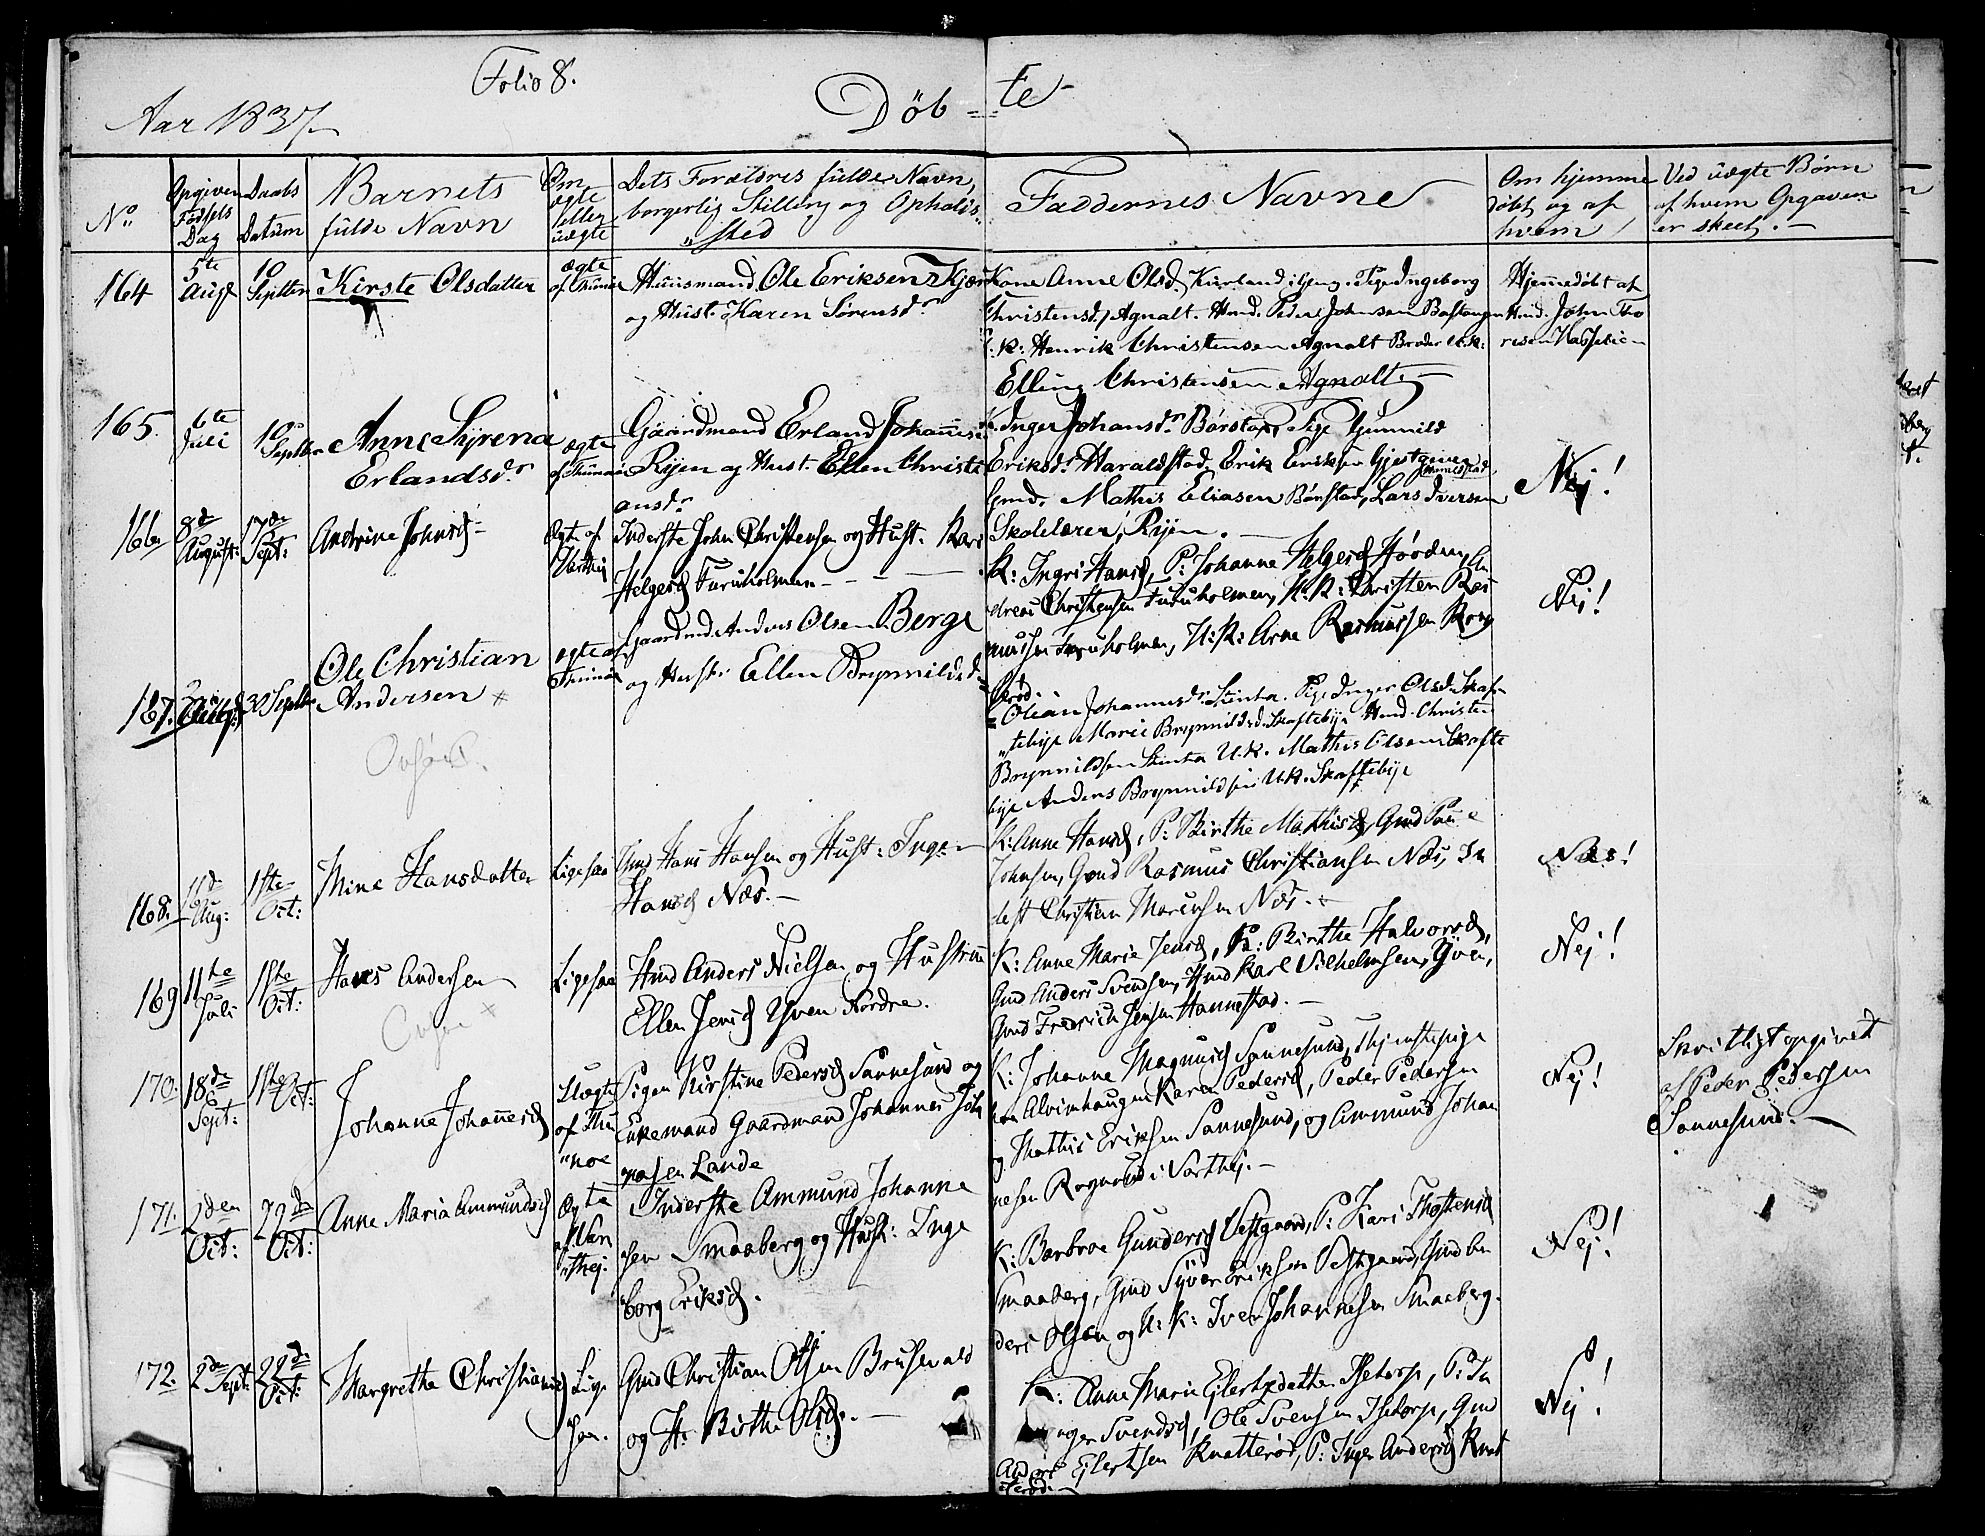 Folio 8.
Aar 1837
Døb= te
No.
Opgiven Fødsels Dag
Daabs Datum
Barnets fulde Navn
Om ægte eller uægte
Dets Forældres fulde Navn, borgerlig Stilling og Opholds-sted
Faddernes Navne
Om hjemme døbt og af hvem
Ved uægte Børn af hvem Opgaven er skeet.
164 5te Aug 10 Septbr Kirste Olsdatter ægte
Huusmand Ole Eriksen
og Hust. Karen Sørensdr
Kone Anne Olsd. Tige Ingeborg
Christensd. Agnalt. Hmd. Peder Johnsen
Henrik Christensen Agnalt Broder U.K.
Elling Christensen Agnalt
Hjemmedøbt af
Hmd. John Tho
resen
165. 6te Juli 10 Septbr Anne Syrena
Erlandsdr ægte
Gaardmand Erland Johannes
Ryen og Hust. Ellen Christi
ansdr
K. Inger Johansdr Børstad, Pige Gunnild
Eriksdr Haraldstad, Erik Eriksen Gjestgiver
Gmd. Mathis Eliasen Børstad, Lars Iversen
Skolelærer, Ryen.
Nej!
166 8de August: 17de Sept: Andrine Johnsd Ægte af Varteig
Inderste John Christensen og Hust. Kari
Helgesd Furuholmen
K: Ingri Hansd, P: Johanne Helgesd
dreas Christensen Furuholmen, U.K: Christen Ras
mussen Furuholmen, U:K: Arne Rasmussen
Nej!
167. 30 Septbr Ole Christian
Andersen ægte af Thunøe
Gaardmd. Anders Olsen Berge
og Hustr: Ellen Brynnildsd.
Oliane Johannesdr. Skinta. Pige Inger Olsd. Skaf
tebye Marie Brynnildsd. Skaftebye Hmd. Christen
Brynnildsen Skinta U.K. Mathis Olsen Skafte
bye Anders Brynnildsen U.K. Skaftebye
168. 11de Aug: 1ste Oct: Mine Hansdatter Ligesaa
Gmd Hans Hansen og Hust: Inger
Hansd Næs.
K: Anne Hansd, P: Birthe Mathisd, Gmd
Johnsen, Gmd Rasmus Christiansen Næs, In
derst Christian Marensen Næs.
Næs!
169 11te Juli 1ste Oct: Hans Andersen Ligesaa
Hmd Anders Nielsen og Hustrue
Ellen Jensd Yven Nordre.
K: Anne Marie Jensd, P: Birthe Halvorsd,
Gmd Anders Svendsen, Hmd Karl Vilhelmsen, Yven,
Gmd Fredrich Jensen Hannestad.
Nej!
170. 18de Sept: 1ste Oct: Johanne Johannesd Uægte af Thu noe
Pigen Kirstine Pedersd Sannesund og
Enkemand Gaardmand Johannes Joh
nasen Lande
K: Johanne Magnusd Sannesund, Thjenstepige
hos Alvimhaugen Karen Pedersd, Peder Pedersen
og Mathis Eriksen Sannesund, og Ammund Johan
nesen Rognerud i Varthej.
Nej!
Skriftligt opgivet
af Peder Pedersen
Sannesund.
171. 2den Oct: 22de Oct: Anne Maria Ammundsd Ægte af Var thej.
Inderste Ammund Johanne
sen Smaaberg og Hust: Inge
borg Eriksd.
K: Barbroe Gundersd Vestgaard, P: Kari Thostensd
Smaaberg, Gmd Syver Eriksen Vestgaard, Gmd An
ders Olsen og U: K: Iver Johannesen Smaaberg.
Nej!
172. 2de Sept: 22de Oct: Margrethe Christiansd Lige saa.
Gmd Christian Olsen Brusevald
og H: Birthe Olsd.
K: Anne Marie Ejlertsdatter Isetorp, P: In
ger Svendsd, Ole Svensen Isetorp, Gmd
Anders Ejlertsen Knatterød, P: Inger Andersd Knat
terød.
Nej!